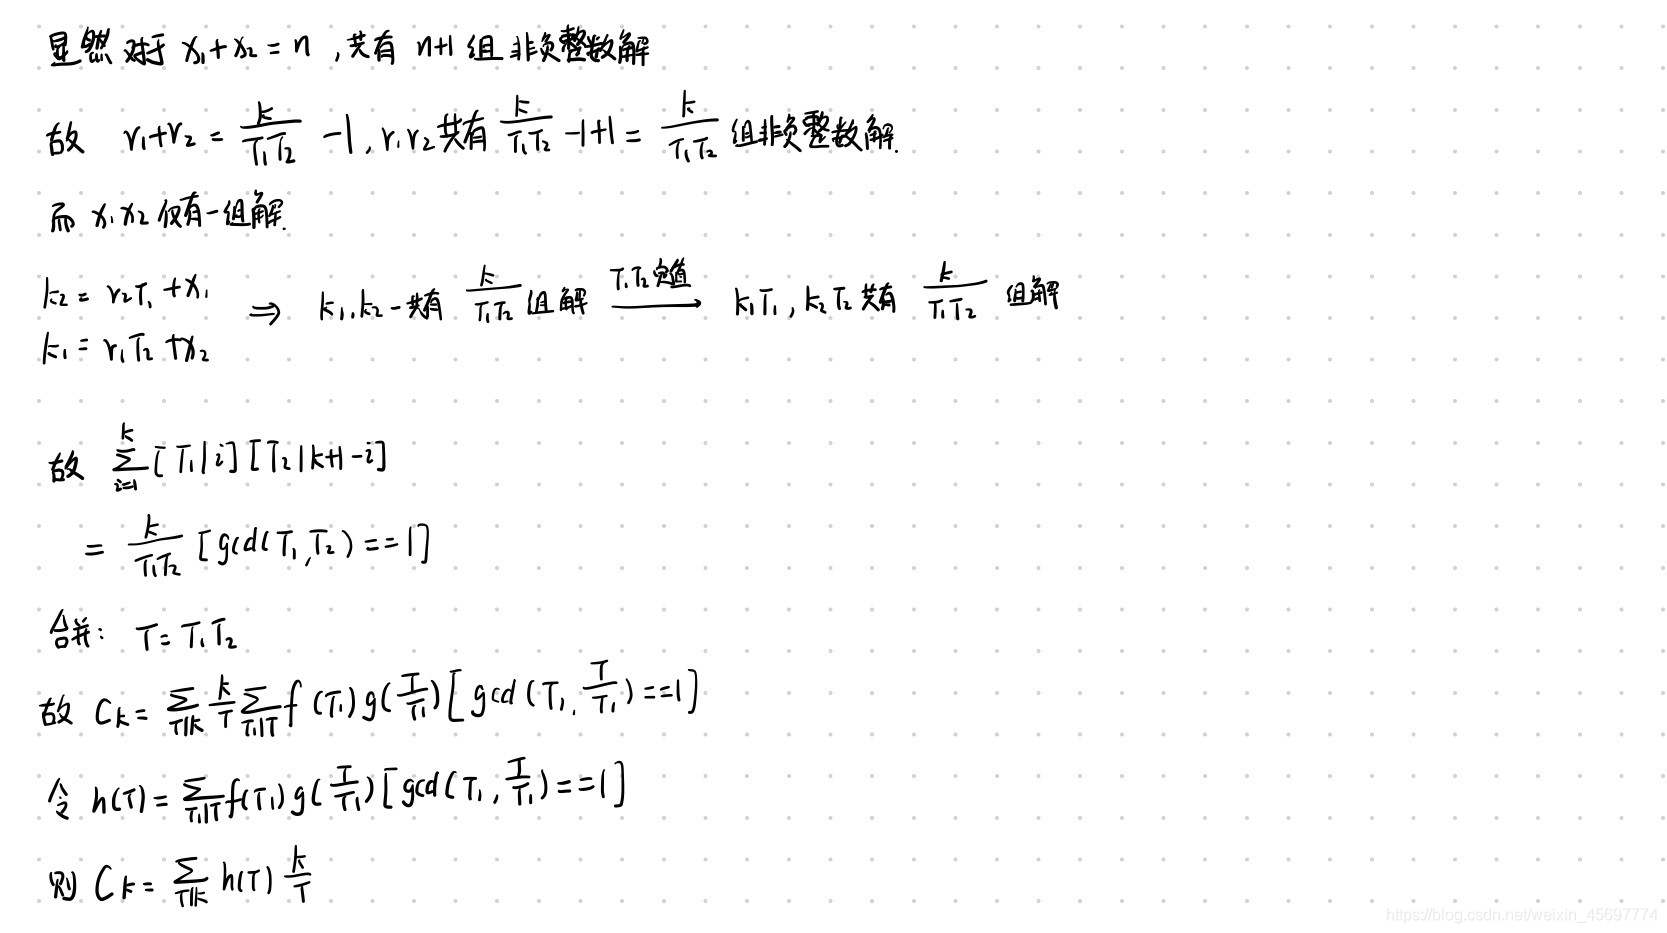 显然对于 x₁+x₂=n ,共有 n+1 组非负整数解
故 r₁+r₂ = k/(T₁T₂) -1, r₁ r₂ 共有 k/(T₁T₂) -1+1 = k/(T₁T₂) 组非负整数解.
而 x₁ x₂ 仅有一组解.
k₂ = r₂T₁ + x₁
k₁ = r₁T₂ + x₂ ⇒ k₁,k₂一共有 k/(T₁T₂) 组解 T₁T₂定值 ⟶ k₁T₁, k₂T₂ 共有 k/(T₁T₂) 组解
故 ∑_{i=1}^{k} [T₁|i] [T₂|k+1-i]
= k/(T₁T₂) [gcd(T₁,T₂)==1]
合并: T=T₁T₂
故 Cₖ= ∑_{T|k} k/T ∑_{T₁|T} f(T₁)g(T/T₁)[gcd(T₁,T/T₁)==1]
令 h(T)= ∑_{T₁|T} f(T₁)g(T/T₁)[gcd(T₁,T/T₁)==1]
则 Cₖ= ∑_{T|k} h(T) k/T
https://blog.csdn.net/weixin_45697774